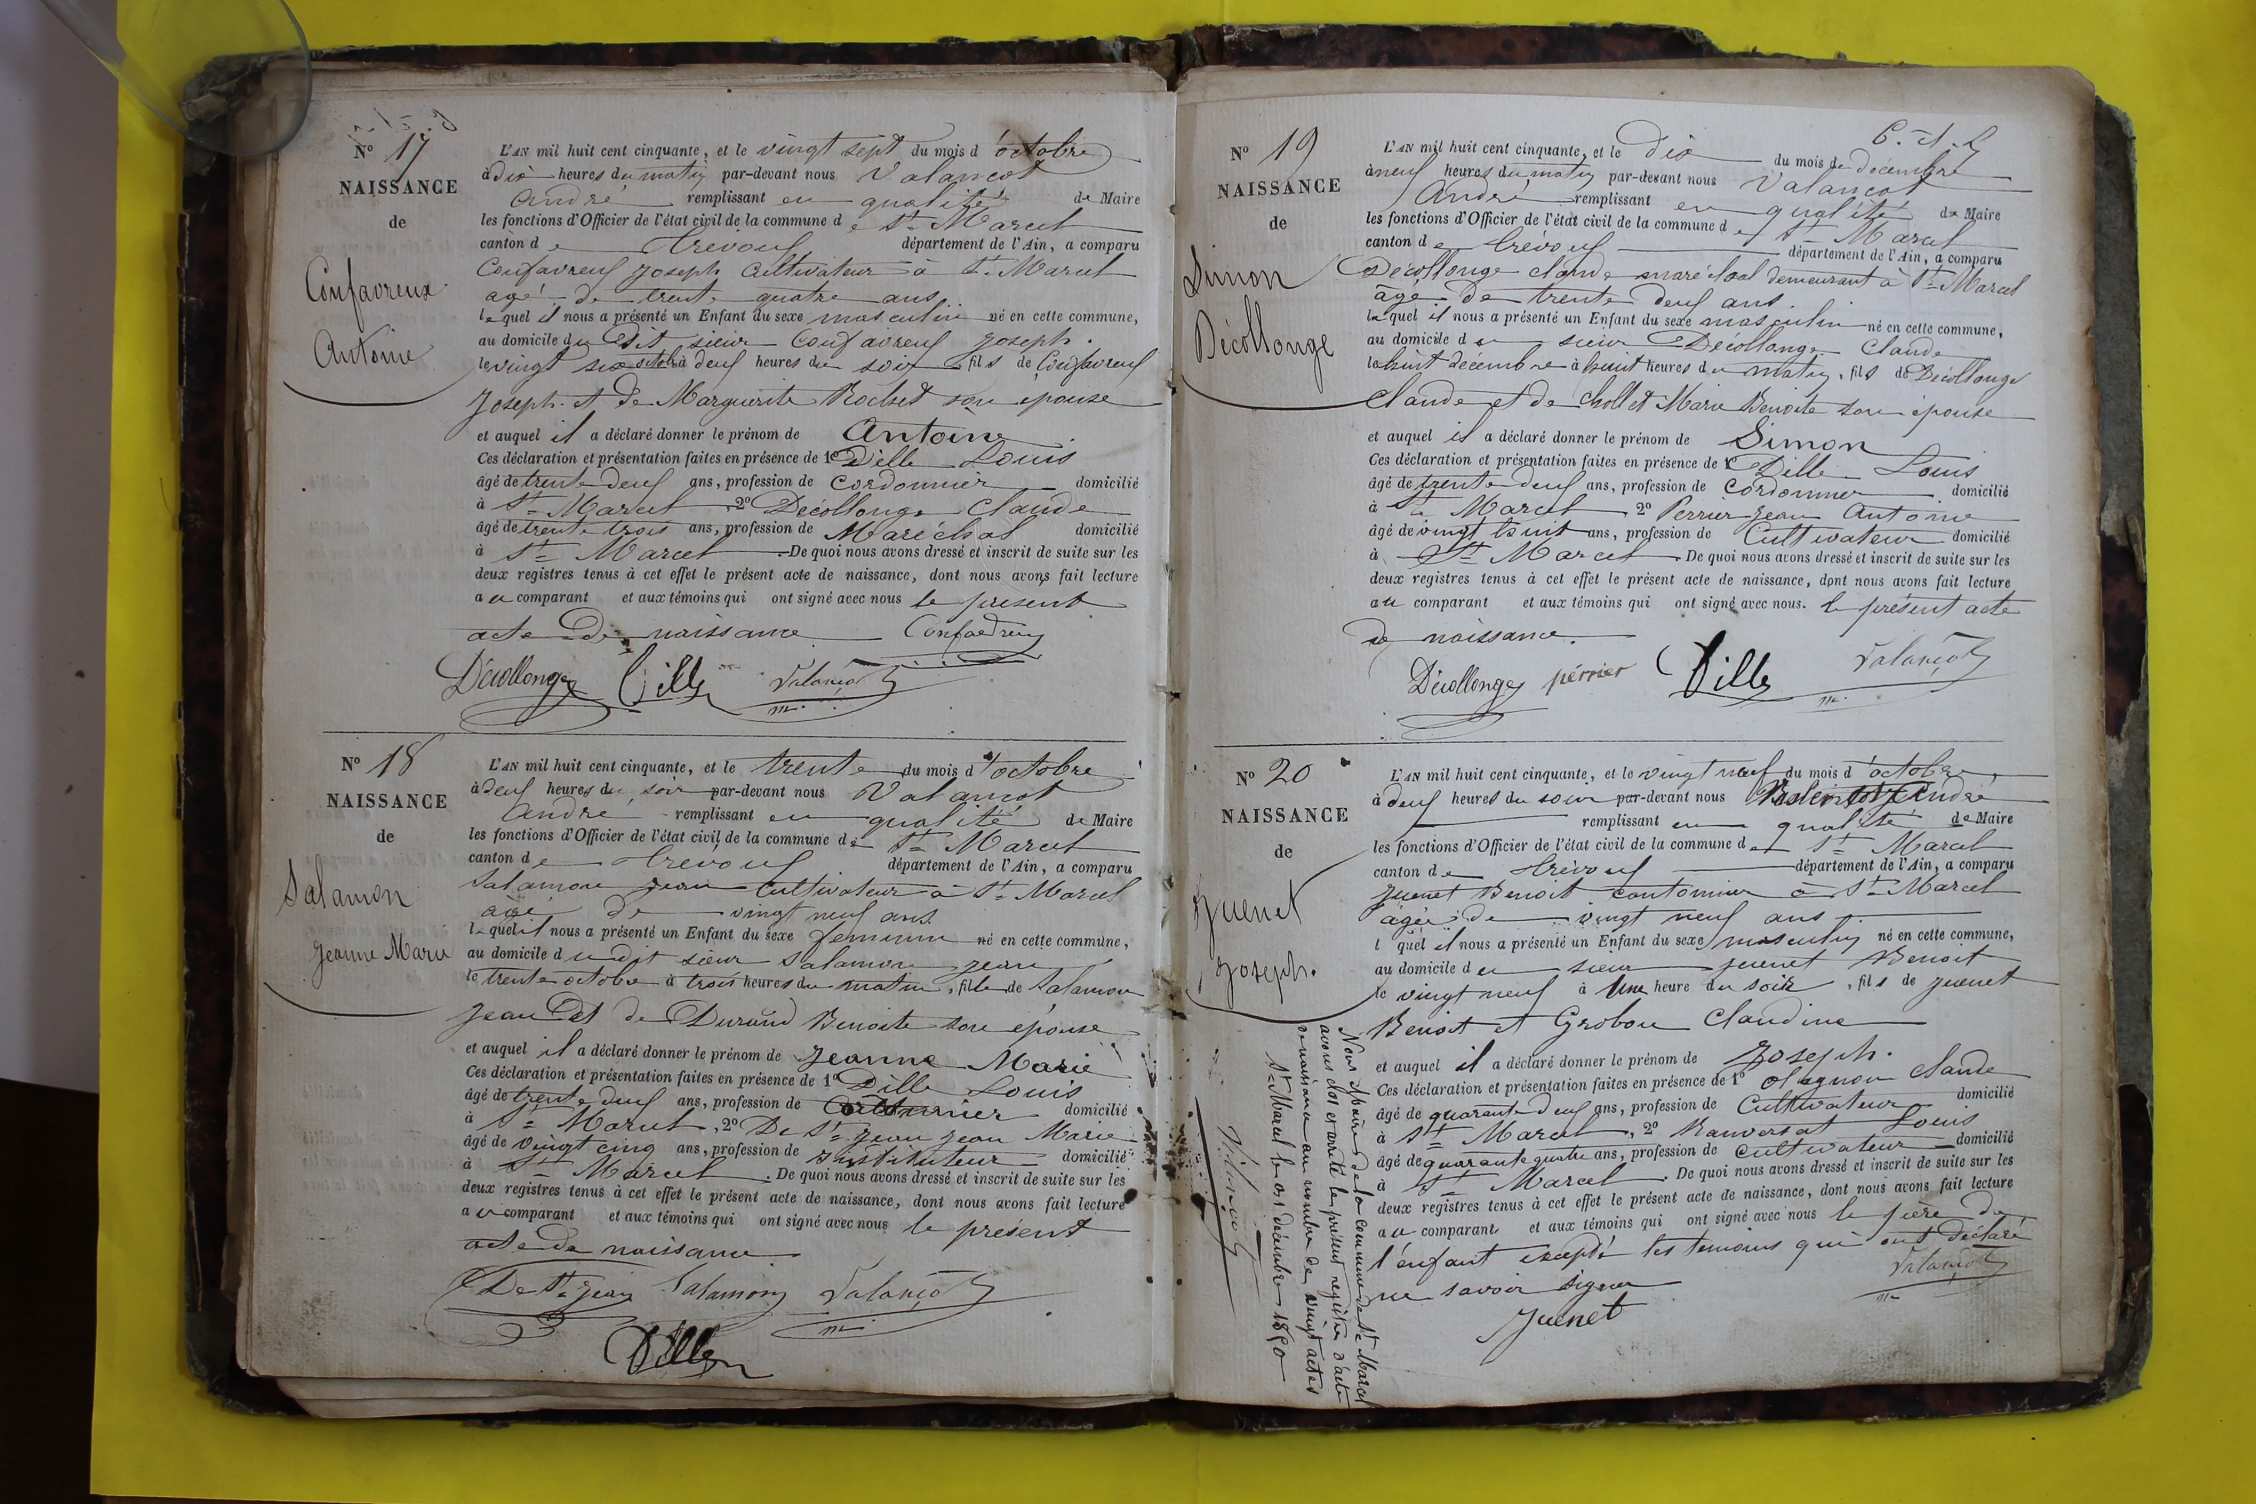 Nº 17
NAISSANCE
de
Confavreux
Antoine
L'AN mil huit cent cinquante, et le vingt sept du mois d'octobre
à dix heures du matin par-devant nous Valançot
André remplissant en qualité de Maire
les fonctions d'Officier de l'état civil de la commune de St Marcel
canton de Trévoux département de l'Ain, a comparu
Confavreux Joseph Cultivateur à St Marcel
agé de trente quatre ans
lequel il nous a présenté un Enfant du sexe masculin né en cette commune,
au domicile du dit sieur Confavreux Joseph.
le vingt six octobre à deux heures du soir fils de Confavreux
Joseph et de Marguerite Rochet son épouse
et auquel il a déclaré donner le prénom de Antoine
Ces déclaration et présentation faites en présence de 1º Dille Louis
âgé de trente deux ans, profession de Cordonnier domicilié
à St Marcel 2º Décollonge Claude
âgé de trente trois ans, profession de Maréchal domicilié
à St Marcel. De quoi nous avons dressé et inscrit de suite sur les
deux registres tenus à cet effet le présent acte de naissance, dont nous avons fait lecture
au comparant et aux témoins qui ont signé avec nous le présent
acte de naissance Confavreux
Décollonge Dille Valançot
m.
Nº 18
NAISSANCE
de
Salamon
Jeanne Marie
L'AN mil huit cent cinquante, et le trente du mois d'octobre
à deux heures du soir par-devant nous Valançot
André remplissant en qualité de Maire
les fonctions d'Officier de l'état civil de la commune de St Marcel
canton de Trévoux département de l'Ain, a comparu
Salamon Jean Cultivateur à St Marcel
agé de vingt neuf ans
lequel il nous a présenté un Enfant du sexe feminin né en cette commune,
au domicile du dit sieur Salamon Jean
le trente octobre à trois heures du matin, fille de Salamon
Jean et de Durand Benoite son épouse
et auquel il a déclaré donner le prénom de Jeanne Marie
Ces déclaration et présentation faites en présence de 1º Dille Louis
âgé de trente deux ans, profession de Cordonnier domicilié
à St Marcel, 2º De St Jean Jean Marie
âgé de vingt cinq ans, profession de Instituteur domicilié
à St Marcel. De quoi nous avons dressé et inscrit de suite sur les
deux registres tenus à cet effet le présent acte de naissance, dont nous avons fait lecture
au comparant et aux témoins qui ont signé avec nous le présent
acte de naissance
De St Jean Salamon Valançot
m.
Dille
Nº 19
NAISSANCE
de
Simon
Décollonge
L'AN mil huit cent cinquante, et le dix du mois de décembre
à neuf heures du matin par-devant nous Valançot
André remplissant en qualité de Maire
les fonctions d'Officier de l'état civil de la commune de St Marcel
canton de Trévoux département de l'Ain, a comparu
Décollonge claude maréchal demeurant à St Marcel
âgé de trente deux ans.
lequel il nous a présenté un Enfant du sexe masculin né en cette commune,
au domicile du sieur Décollonge Claude
le huit décembre à huit heures du matin, fils de Décollonge
Claude et de Chollet Marie Benoite son épouse
et auquel il a déclaré donner le prénom de Simon
Ces déclaration et présentation faites en présence de 1º Dille Louis
âgé de trente deux ans, profession de Cordonnier domicilié
à St Marcel 2º Perrier Jean Antoine
âgé de vingt huit ans, profession de Cultivateur domicilié
à St Marcel. De quoi nous avons dressé et inscrit de suite sur les
deux registres tenus à cet effet le présent acte de naissance, dont nous avons fait lecture
au comparant et aux témoins qui ont signé avec nous. le présent acte
de naissance.
Décollonge périer Dille Valançot
m.
Nº 20
NAISSANCE
de
Juenet
Joseph.
L'AN mil huit cent cinquante, et le vingt neuf du mois d'octobre,
à deux heures du soir par-devant nous Valançot André
remplissant en qualité de Maire
les fonctions d'Officier de l'état civil de la commune de St Marcel
canton de Trévoux département de l'Ain, a comparu
Juenet Benoit cantonnier à St Marcel
âgé de vingt neuf ans
lequel il nous a présenté un Enfant du sexe masculin né en cette commune,
au domicile du sieur Juenet Benoit
le vingt neuf à Une heure du soir, fils de Juenet
Benoit et Grobon Claudine
et auquel il a déclaré donner le prénom de Joseph.
Ces déclaration et présentation faites en présence de 1º Olagnon Claude
âgé de quarante deux ans, profession de Cultivateur domicilié
à St Marcel, 2º Ranversat Louis
âgé de quarante quatre ans, profession de cultivateur domicilié
à St Marcel. De quoi nous avons dressé et inscrit de suite sur les
deux registres tenus à cet effet le présent acte de naissance, dont nous avons fait lecture
au comparant et aux témoins qui ont signé avec nous le père de
l'enfant excepté les temoins qui ont déclaré
ne savoir signer Valançot
m.
Juenet
Nous Maire de la commune de St Marcel
avons clos et arrêté le présent registre d'acte
de naissance au nombre de vingt actes
St Marcel le 31 décembre 1850
Valançot